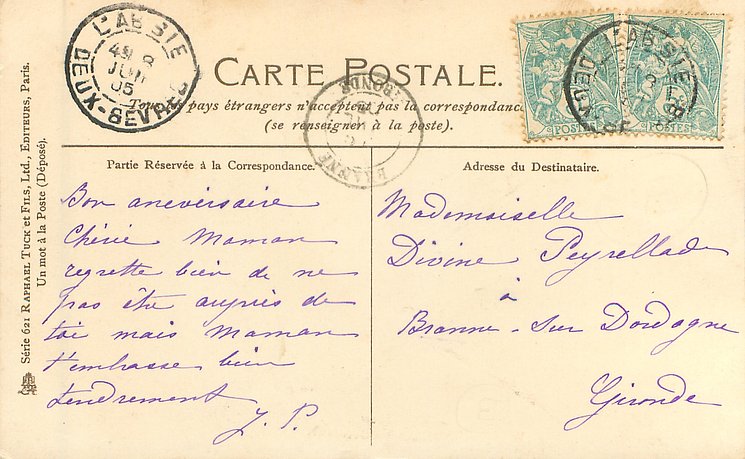 CARTE POSTALE.
Tous les pays étrangers n'acceptent pas la correspondance
(se renseigner à la poste).
L'ABSIE
8
JUIN
05
DEUX-SÈVRES
BRANNE
GIRONDE
L'ABSIE
DEUX-SÈVRES
POSTES
POSTES
Partie Réservée à la Correspondance.
Bon aneversaire
Chérie Maman
regrette bien de ne
pas être auprès de
toi mais Maman
t'embrasse bien
tendrement
J. P.
Adresse du Destinataire.
Mademoiselle
Divine Peyrellade
à
Branne-sur Dordogne
Gironde
Série 621 RAPHAEL TUCK ET FILS, LTD., EDITEURS, Paris.
Un mot à la Poste (Déposé).